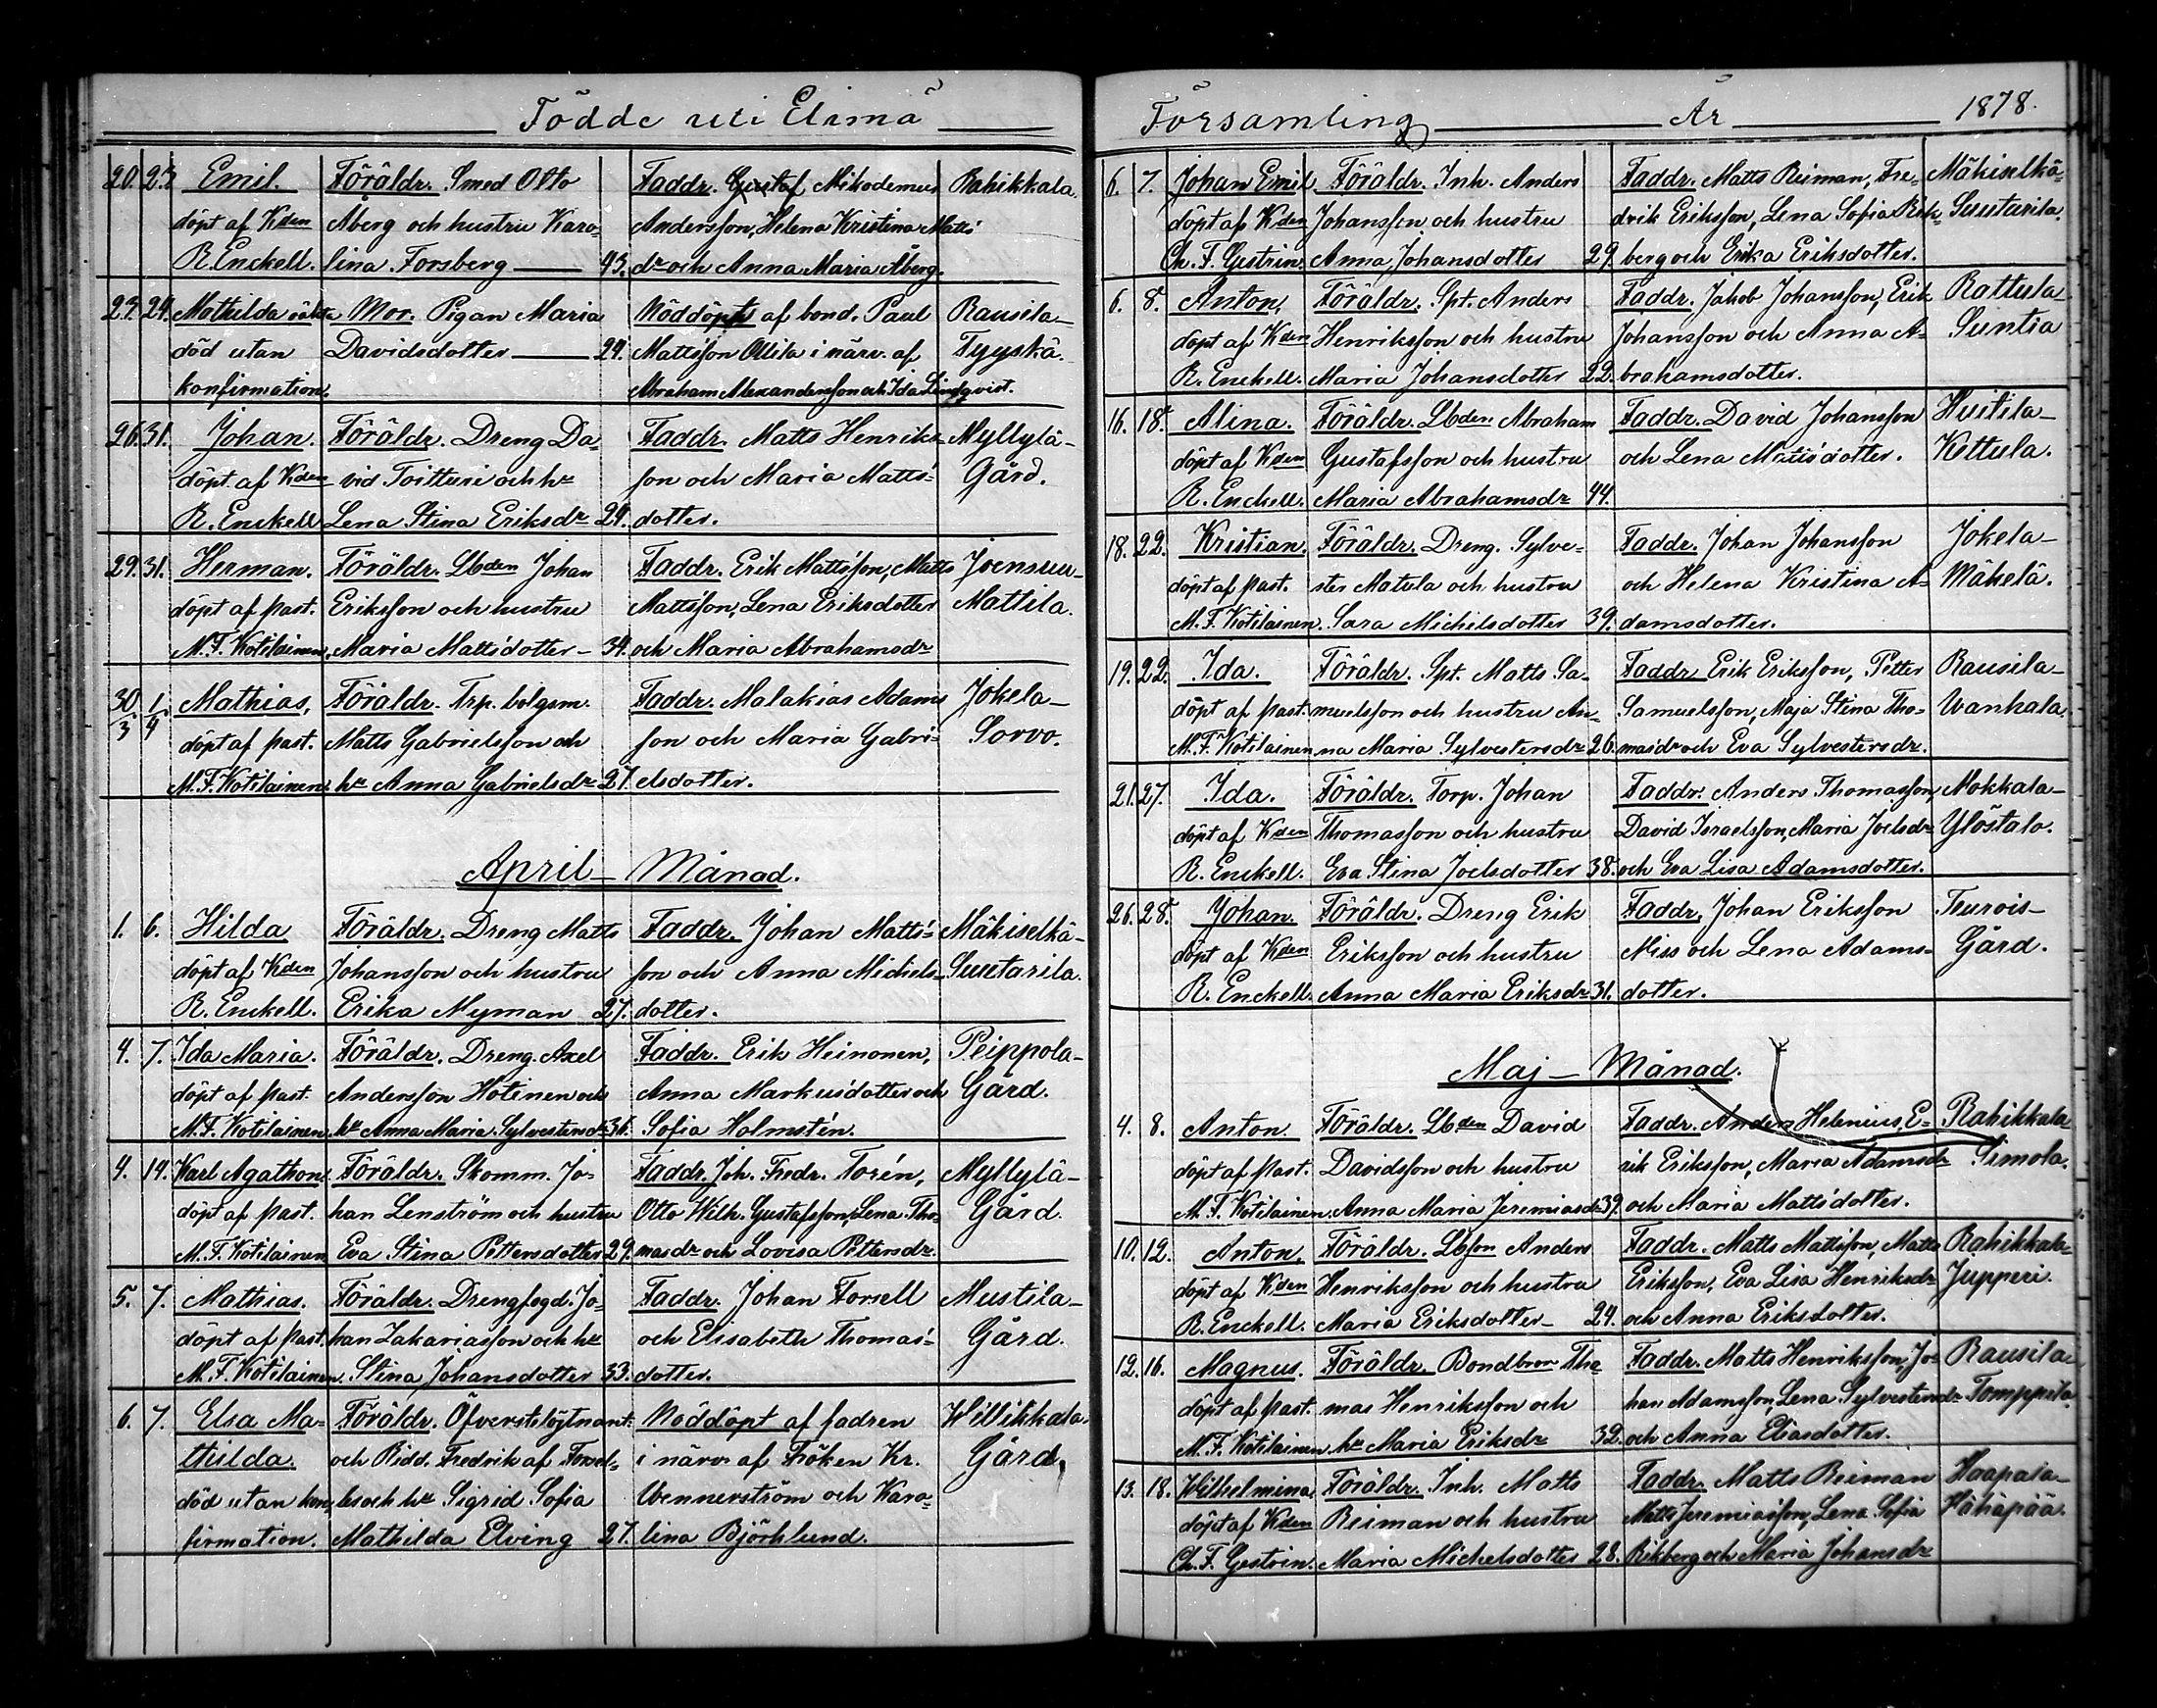 Födde uti Elimä
20. 23. Emil. Föräldr. Smed Otto Faddr. Gustaf Nikodemus Rahikkala.
döpt af Kden Åberg och hustru Karo- Andersson, Helena Kristina Matts-
R. Enckell. lina Forsberg — 43. dr och Anna Maria Åberg.
23. 24. Mathilda oäkta Mor. Pigan Maria Nöddöpt af bond. Paul Rausila-
död utan Davidsdotter — 24. Mattsson Ollila i närv. af Tyyskä.
konfirmation. Abraham Alexandersson och Ida Lindqvist.
26. 31. Johan. Föräldr. Dreng Da- Faddr. Matts Henriks- Myllylä-
döpt af Kden vid Toitturi och hu son och Maria Matts- Gård.
R. Enckell Lena Stina Eriksdr 29. dotter.
29. 31. Herman. Föräldr. Lbden Johan Faddr. Erik Mattsson, Matts Joensuu-
döpt af past. Eriksson och hustru Mattsson, Lena Eriksdotter Mattila.
M. F. Kotilainen. Maria Mattsdotter – 34. och Maria Abrahamsdr
30/3 1/4 Mathias, Föräldr. Trp. bolgsm. Faddr. Malakias Adams Jokela-
döpt af past. Matts Gabrielsson och son och Maria Gabri- Sorvo.
M. F. Kotilainen. hu Anna Gabrielsdr 27. elsdotter.
April – Månad.
1. 6. Hilda Föräldr. Dreng Matts Faddr. Johan Matts- Mäkiselkä-
döpt af Kden Johansson och hustru son och Anna Michels- Suutarila.
R. Enckell. Erika Nyman 27. dotter.
4. 7. Ida Maria. Föräldr. Dreng. Axel Faddr. Erik Heinonen, Peippola-
döpt af past. Andersson Hotinen och Anna Markusdotter och Gård.
M. F. Kotilainen. hu Anna Maria Sylvestersdr 36. Sofia Holmstén.
4. 14. Karl Agathon. Föräldr. Skomm. Jo- Faddr. Joh. Fredr. Torén, Myllylä-
döpt af past. han Lenström och hustru Otto Wilh. Gustafsson, Lena Tho- Gård.
M. F. Kotilainen Eva Stina Pettersdotter 29. masdr och Lovisa Pettersdr.
5. 7. Mathias. Föräldr. Drengfogd. Jo- Faddr. Johan Forsell Mustila-
döpt af past. han Zakariasson och hu och Elisabeth Thomas- Gård.
M. F. Kotilainen. Stina Johansdotter 33. dotter.
6. 7. Elsa Ma- Föräldr. Öfverstelöjtnant. Nöddöpt af fadren Willikkala-
thilda. och Ridd. Fredrik af Forsel- i närv. af Fröken Kr. Gård.
död utan kon- les och hu Sigrid Sofia Wennerström och Karo-
firmation. Mathilda Elving 27. lina Björklund.
Församling — År — 1878.
6. 7. Johan Emil Föräldr. Inh. Anders Faddr. Matts Reiman, Fre- Mäkiselkä-
döpt af Kden Johansson och hustru drik Eriksson, Lena Sofia Rik- Suutarila.
Ch. F. Gestrin. Anna Johansdotter 29. berg och Erika Eriksdotter.
6. 8. Anton, Föräldr. Spt. Anders Faddr. Jakob Johansson, Erik Rattula-
döpt af Kden Henriksson och hustru Johansson och Anna A- Suntia
R. Enckell. Maria Johansdotter 22. brahamsdotter.
16. 18. Alina. Föräldr. Lbden Abraham Faddr. David Johansson Huitila-
döpt af Kden Gustafsson och hustru och Lena Mattsdotter. Kettula.
R. Enckell. Maria Abrahamsdr 44.
18. 22. Kristian. Föräldr. Dreng. Sylve- Faddr. Johan Johansson Jokela-
döpt af past. ster Matula och hustru och Helena Kristina A- Mäkelä.
M. F. Kotilainen. Sara Michelsdotter 39. damsdotter.
19. 22. Ida. Föräldr. Spt. Matts Sa- Faddr Erik Eriksson, Petter Rausila-
döpt af past. muelsson och hustru An- Samuelsson, Maja Stina Tho- Wanhala.
M. F. Kotilainen na Maria Sylvestersdr 26. masdr och Eva Sylvestersdr.
21. 27. Ida. Föräldr. Torp. Johan Faddr. Anders Thomasson, Mokkala-
döpt af Kden Thomasson och hustru David Israelsson, Maria Joelsdr Ylöstalo.
R. Enckell. Eva Stina Joelsdotter 38. och Eva Lisa Adamsdotter.
26. 28. Johan. Föräldr. Dreng Erik Faddr. Johan Eriksson Teurois-
döpt af Kden Eriksson och hustru Niss och Lena Adams- Gård.
R. Enckell. Anna Maria Eriksdr 31. dotter.
Maj – Månad.
4. 8. Anton. Föräldr. Lbden David Faddr. Anders Helenius, E- Rahikkala
döpt af past. Davidsson och hustru rik Eriksson, Maria Adamsdr Simola.
M. F. Kotilainen. Anna Maria Jeremiasdr 39. och Maria Mattsdotter.
10. 12. Anton, Föräldr. Lbson Anders Faddr. Matts Mattsson, Matts Rahikkala-
döpt af Kden Henriksson och hustru Eriksson, Eva Lisa Henriksdr Jupperi.
R. Enckell. Maria Eriksdotter – 24. och Anna Eriksdotter.
12. 16. Magnus. Föräldr. Bondbror Tho- Faddr. Matts Henriksson, Jo- Rausila-
döpt af past. mas Henriksson och han Adamsson, Lena Sylvestersdr Tomppila.
M. F. Kotilainen hu Maria Eriksdr 32. och Anna Eliasdotter.
13. 18. Wilhelmina, Föräldr. Inh. Matts Faddr. Matts Reiman Haapala-
döpt af Kden Reiman och hustru Matts Jeremiasson, Lena Sofia Hähäpää.
Ch. F. Gestrin. Maria Michelsdotter 28. Rikberg och Maria Johansdr